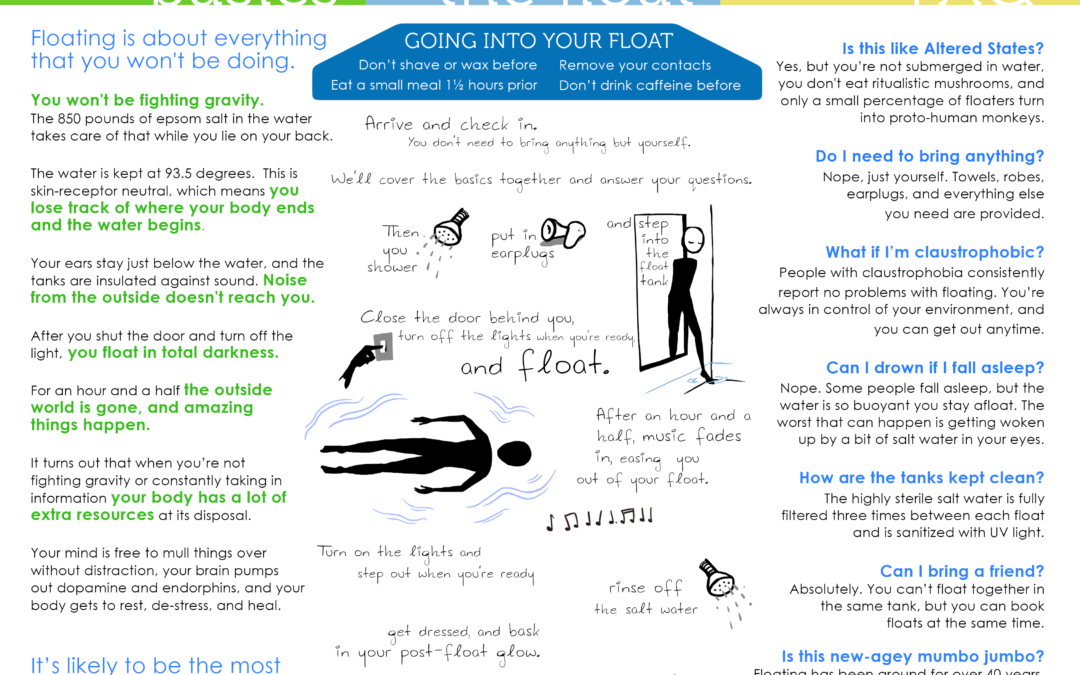 Floating is about everything
that you won't be doing.
You won't be fighting gravity.
The 850 pounds of epsom salt in the water
takes care of that while you lie on your back.
The water is kept at 93.5 degrees.  This is
skin-receptor neutral, which means you
lose track of where your body ends
and the water begins.
Your ears stay just below the water, and the
tanks are insulated against sound. Noise
from the outside doesn't reach you.
After you shut the door and turn off the
light, you float in total darkness.
For an hour and a half the outside
world is gone, and amazing
things happen.
It turns out that when you're not
fighting gravity or constantly taking in
information your body has a lot of
extra resources at its disposal.
Your mind is free to mull things over
without distraction, your brain pumps
out dopamine and endorphins, and your
body gets to rest, de-stress, and heal.
It's likely to be the most
GOING INTO YOUR FLOAT
Don't shave or wax before
Remove your contacts
Eat a small meal 1½ hours prior
Don't drink caffeine before
Arrive and check in.
You don't need to bring anything but yourself.
We'll cover the basics together and answer your questions.
Then
you
shower
put in
earplugs
and step
into
the
float
tank
Close the door behind you,
turn off the lights when you're ready,
and float.
After an hour and a
half, music fades
in, easing you
out of your float.
Turn on the lights and
step out when you're ready
rinse off
the salt water
get dressed, and bask
in your post-float glow.
Is this like Altered States?
Yes, but you're not submerged in water,
you don't eat ritualistic mushrooms, and
only a small percentage of floaters turn
into proto-human monkeys.
Do I need to bring anything?
Nope, just yourself. Towels, robes,
earplugs, and everything else
you need are provided.
What if I'm claustrophobic?
People with claustrophobia consistently
report no problems with floating. You're
always in control of your environment, and
you can get out anytime.
Can I drown if I fall asleep?
Nope. Some people fall asleep, but the
water is so buoyant you stay afloat. The
worst that can happen is getting woken
up by a bit of salt water in your eyes.
How are the tanks kept clean?
The highly sterile salt water is fully
filtered three times between each float
and is sanitized with UV light.
Can I bring a friend?
Absolutely. You can't float together in
the same tank, but you can book
floats at the same time.
Is this new-agey mumbo jumbo?
Floating has been around for over 40 years,